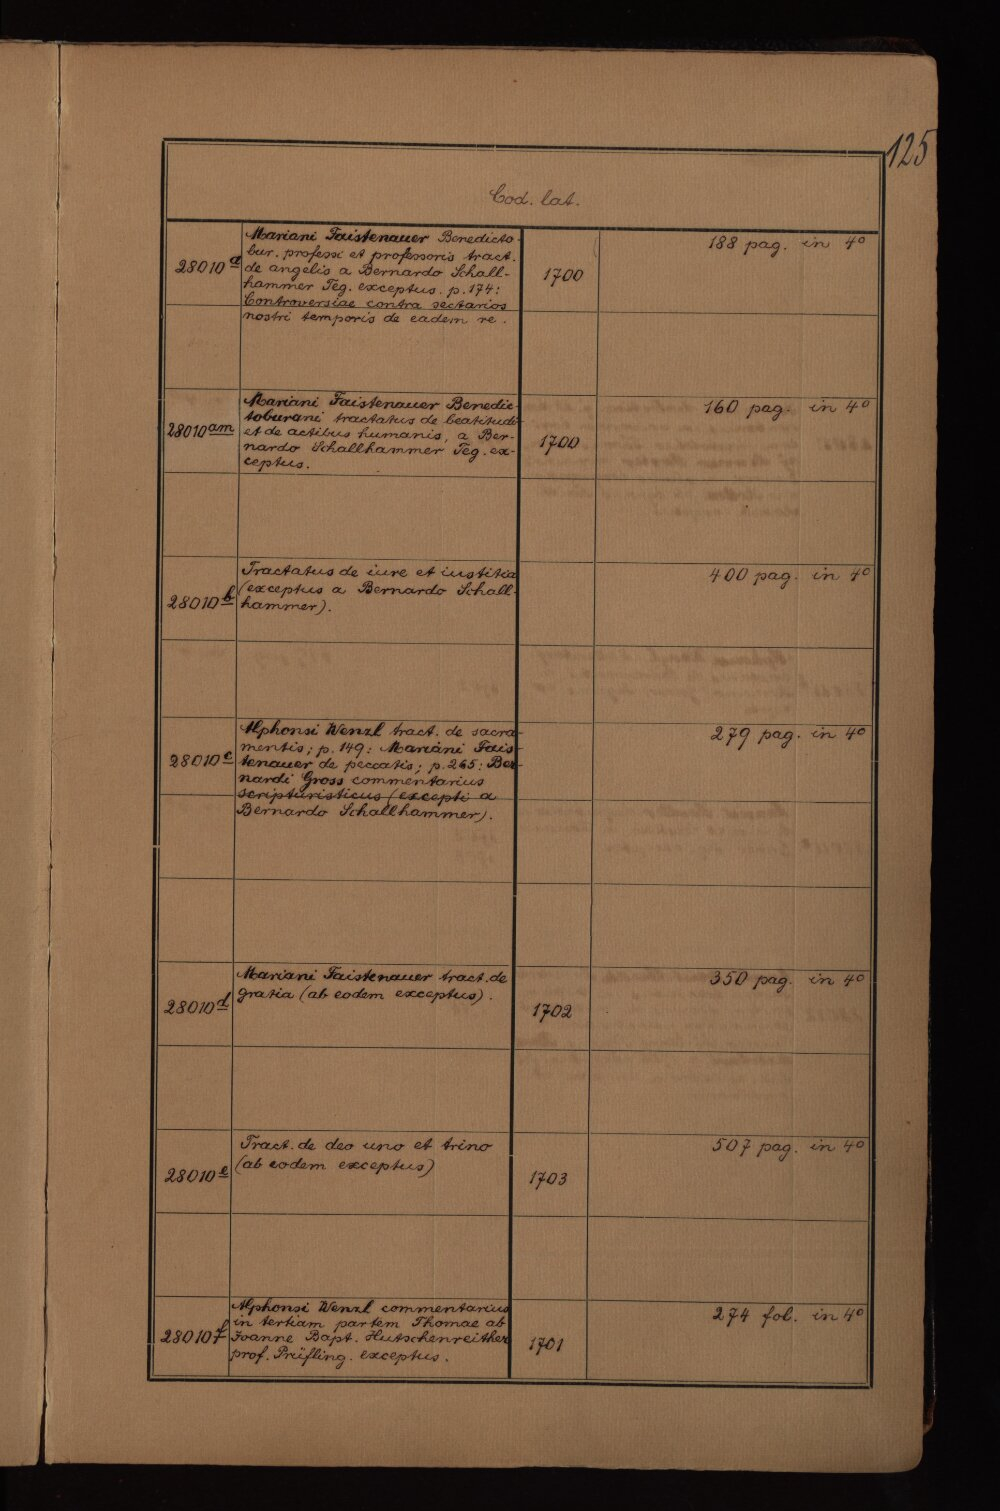 125
Cod. lat.
28010a
Mariani Faistenauer Benedicto-
bur. professi et professoris tract.
de angelis a Bernardo Schall-
hammer Teg. exceptus. p. 174:
Controversiae contra sectarios
nostri temporis de eadem re.
1700
188 pag. in 4o
28010am
Mariani Faistenauer Benedic-
toburani tractatus de beatitudi-
et de actibus humanis, a Ber-
nardo Schallhammer Teg. ex-
ceptus.
1700
160 pag. in 4o
28010b
Tractatus de iure et iustitia
(exceptus a Bernardo Schall-
hammer).
400 pag. in 4o
28010c
Alphonsi Wenzl tract. de sacra-
mentis; p. 149: Mariani Fais-
tenauer de peccatis; p. 265: Ber-
nardi Gross commentarius
scripturisticus (excepti a
Bernardo Schallhammer).
279 pag. in 4o
28010d
Mariani Faistenauer tract. de
gratia (ab eodem exceptus).
1702
350 pag. in 4o
28010e
Tract. de deo uno et trino
(ab eodem exceptus)
1703
507 pag. in 4o
28010f
Alphonsi Wenzl commentarius
in tertiam partem Thomae ab
Joanne Bapt. Hutschenreither
prof. Prüfling. exceptus.
1701
274 fol. in 4o